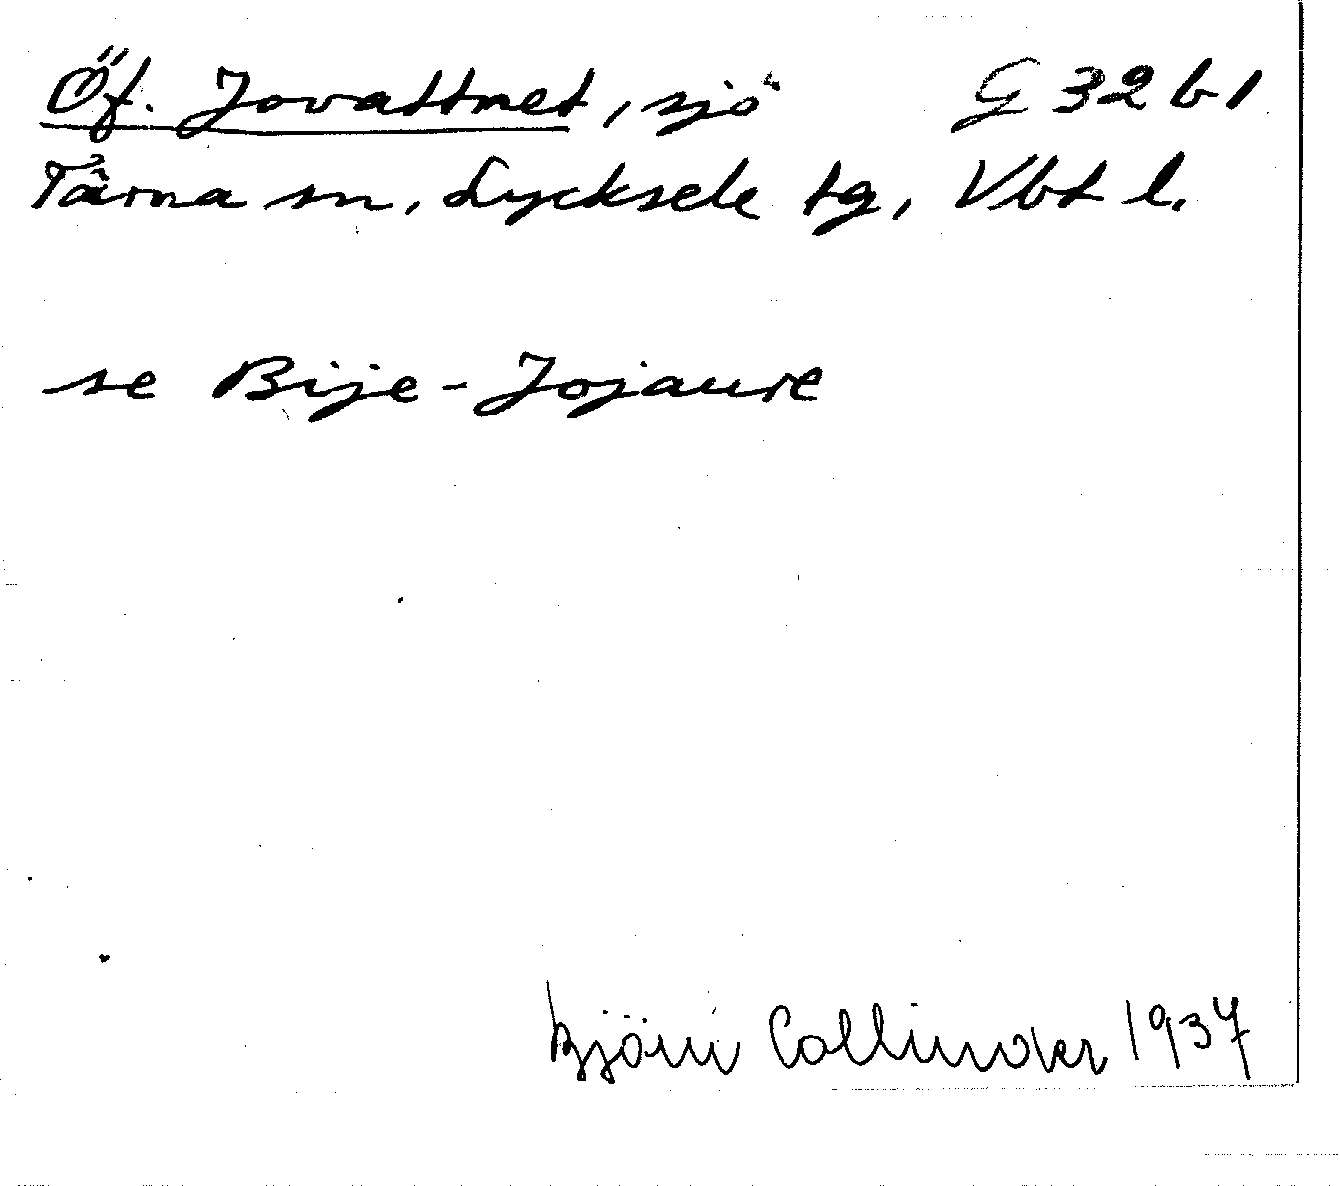 Öf. Jovattnet, sjö G 32 b 1
Tärna sn, Lycksele tg, Vbt l.
se Bije-Jojaure
Björn Collinder 1937